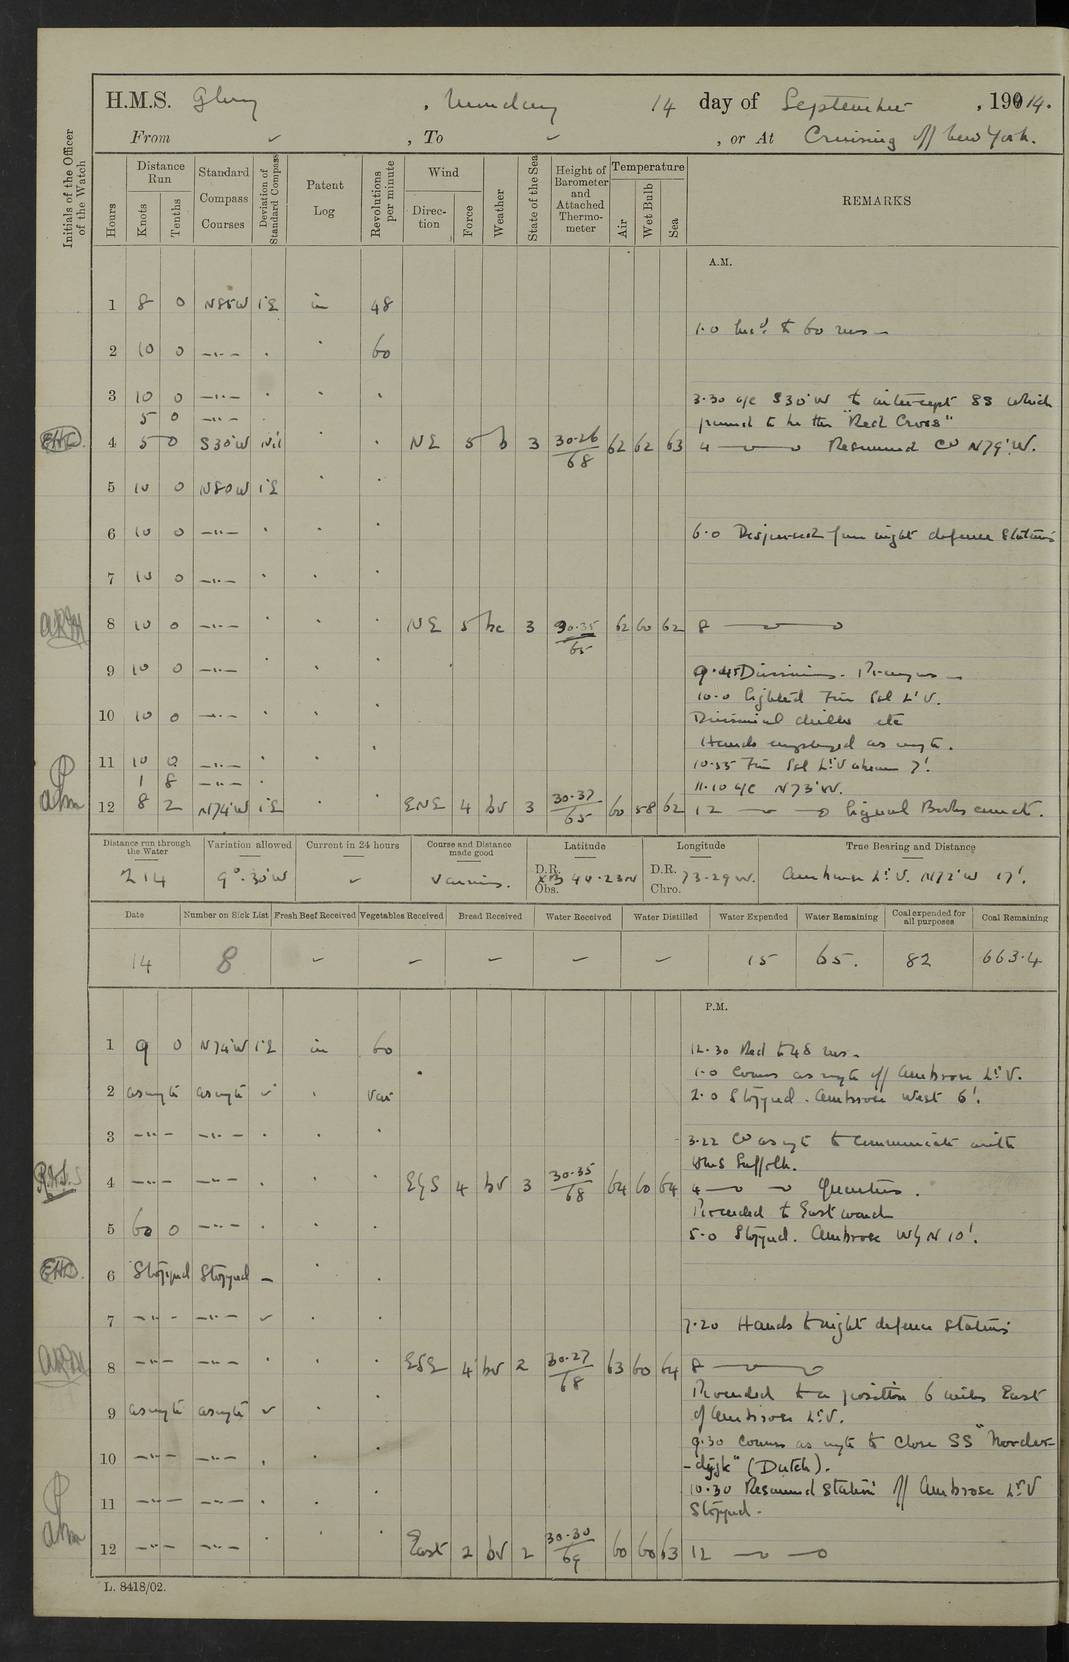 H.M.S. Glory , Monday 14 day of September , 1914.
From ✓ , To ✓ , or At Cruising off New York.
Initials of the Officer of the Watch
Hours
Distance Run
Knots
Tenths
Standard Compass Courses
Deviation of Standard Compass
Patent Log
Revolutions per minute
Wind
Direction
Force
Weather
State of the Sea
Height of Barometer and Attached Thermometer
Temperature
Air
Wet Bulb
Sea
REMARKS
A.M.
1 8 0 N85W 1°E in 48
1.0 Inc'd to 60 revs
2 10 0 —"— . . 60
3 10 0 —"— . . .
3.30 a/c S30°W to intercept SS which
5 0 —"—
proved to be the "Red Cross"
4 5 0 S30°W Nil . . NE 5 b 3 30.26/68 62 62 63 4 Resumed Co N79°W.
5 10 0 N80W 1°E . .
6 10 0 —"— . . . 6.0 Dispersed from night defence Stations
7 10 0 —"— . . .
8 10 0 —"— . . . NE 5 bc 3 30.35/65 62 60 62 8
9 10 0 —"— . . . 9.45 Divisions. Prayers
10.0 Sighted Fire Isl Lt V.
10 10 0 —"— . . . Divisional drills etc
Hands employed as reqte.
11 10 0 —"— . . . 10.55 Fire Isl Lt V abeam 7'.
1 8 —"— . 11.10 a/c N73°W.
12 8 2 N74°W 1°E . . ENE 4 bv 3 30.37/65 60 58 62 12 Signal Books correct.
Distance run through the Water
Variation allowed
Current in 24 hours
Course and Distance made good
Latitude
Longitude
True Bearing and Distance
214 9°.30'W ✓ Various. D.R. 40.23N Obs. D.R. 73.29W. Chro. Ambrose Lt. V. N72°W 17'.
Date
Number on Sick List
Fresh Beef Received
Vegetables Received
Bread Received
Water Received
Water Distilled
Water Expended
Water Remaining
Coal expended for all purposes
Coal Remaining
14 8 – – – – – 15 65. 82 663.4
P.M.
1 9 0 N74°W 1°E in 60 12.30 Red to 48 revs.
1.0 Courses as reqte off Ambrose Lt. V.
2 as reqte as reqte ✓ . var 2.0 Stopped. Ambrose West 6'.
3 —"— —"— . . . 3.22 Co as reqte to communicate with
HMS Suffolk.
4 —"— —"— . . . ExS 4 bv 3 30.35/68 64 60 64 4 Quarters.
Proceeded to Eastward
5 60 0 —"— . . . 5.0 Stopped. Ambrose WxN 10'.
6 Stopped Stopped – . .
7 —"— —"— ✓ . . 7.20 Hands to night defence Stations
8 —"— —"— . . . ESE 4 bv 2 30.27/68 63 60 64 8
Proceeded to a position 6 miles East
9 as reqte as reqte ✓ . . of Ambrose Lt. V.
9.30 Courses as reqte to close SS "Norder-
10 —"— —"— . . . -dijk" (Dutch).
11 —"— —"— . . . 10.30 Resumed Station off Ambrose Lt. V
Stopped.
12 —"— —"— . . . East 2 bv 2 30.30/69 60 60 63 12
L. 8418/02.